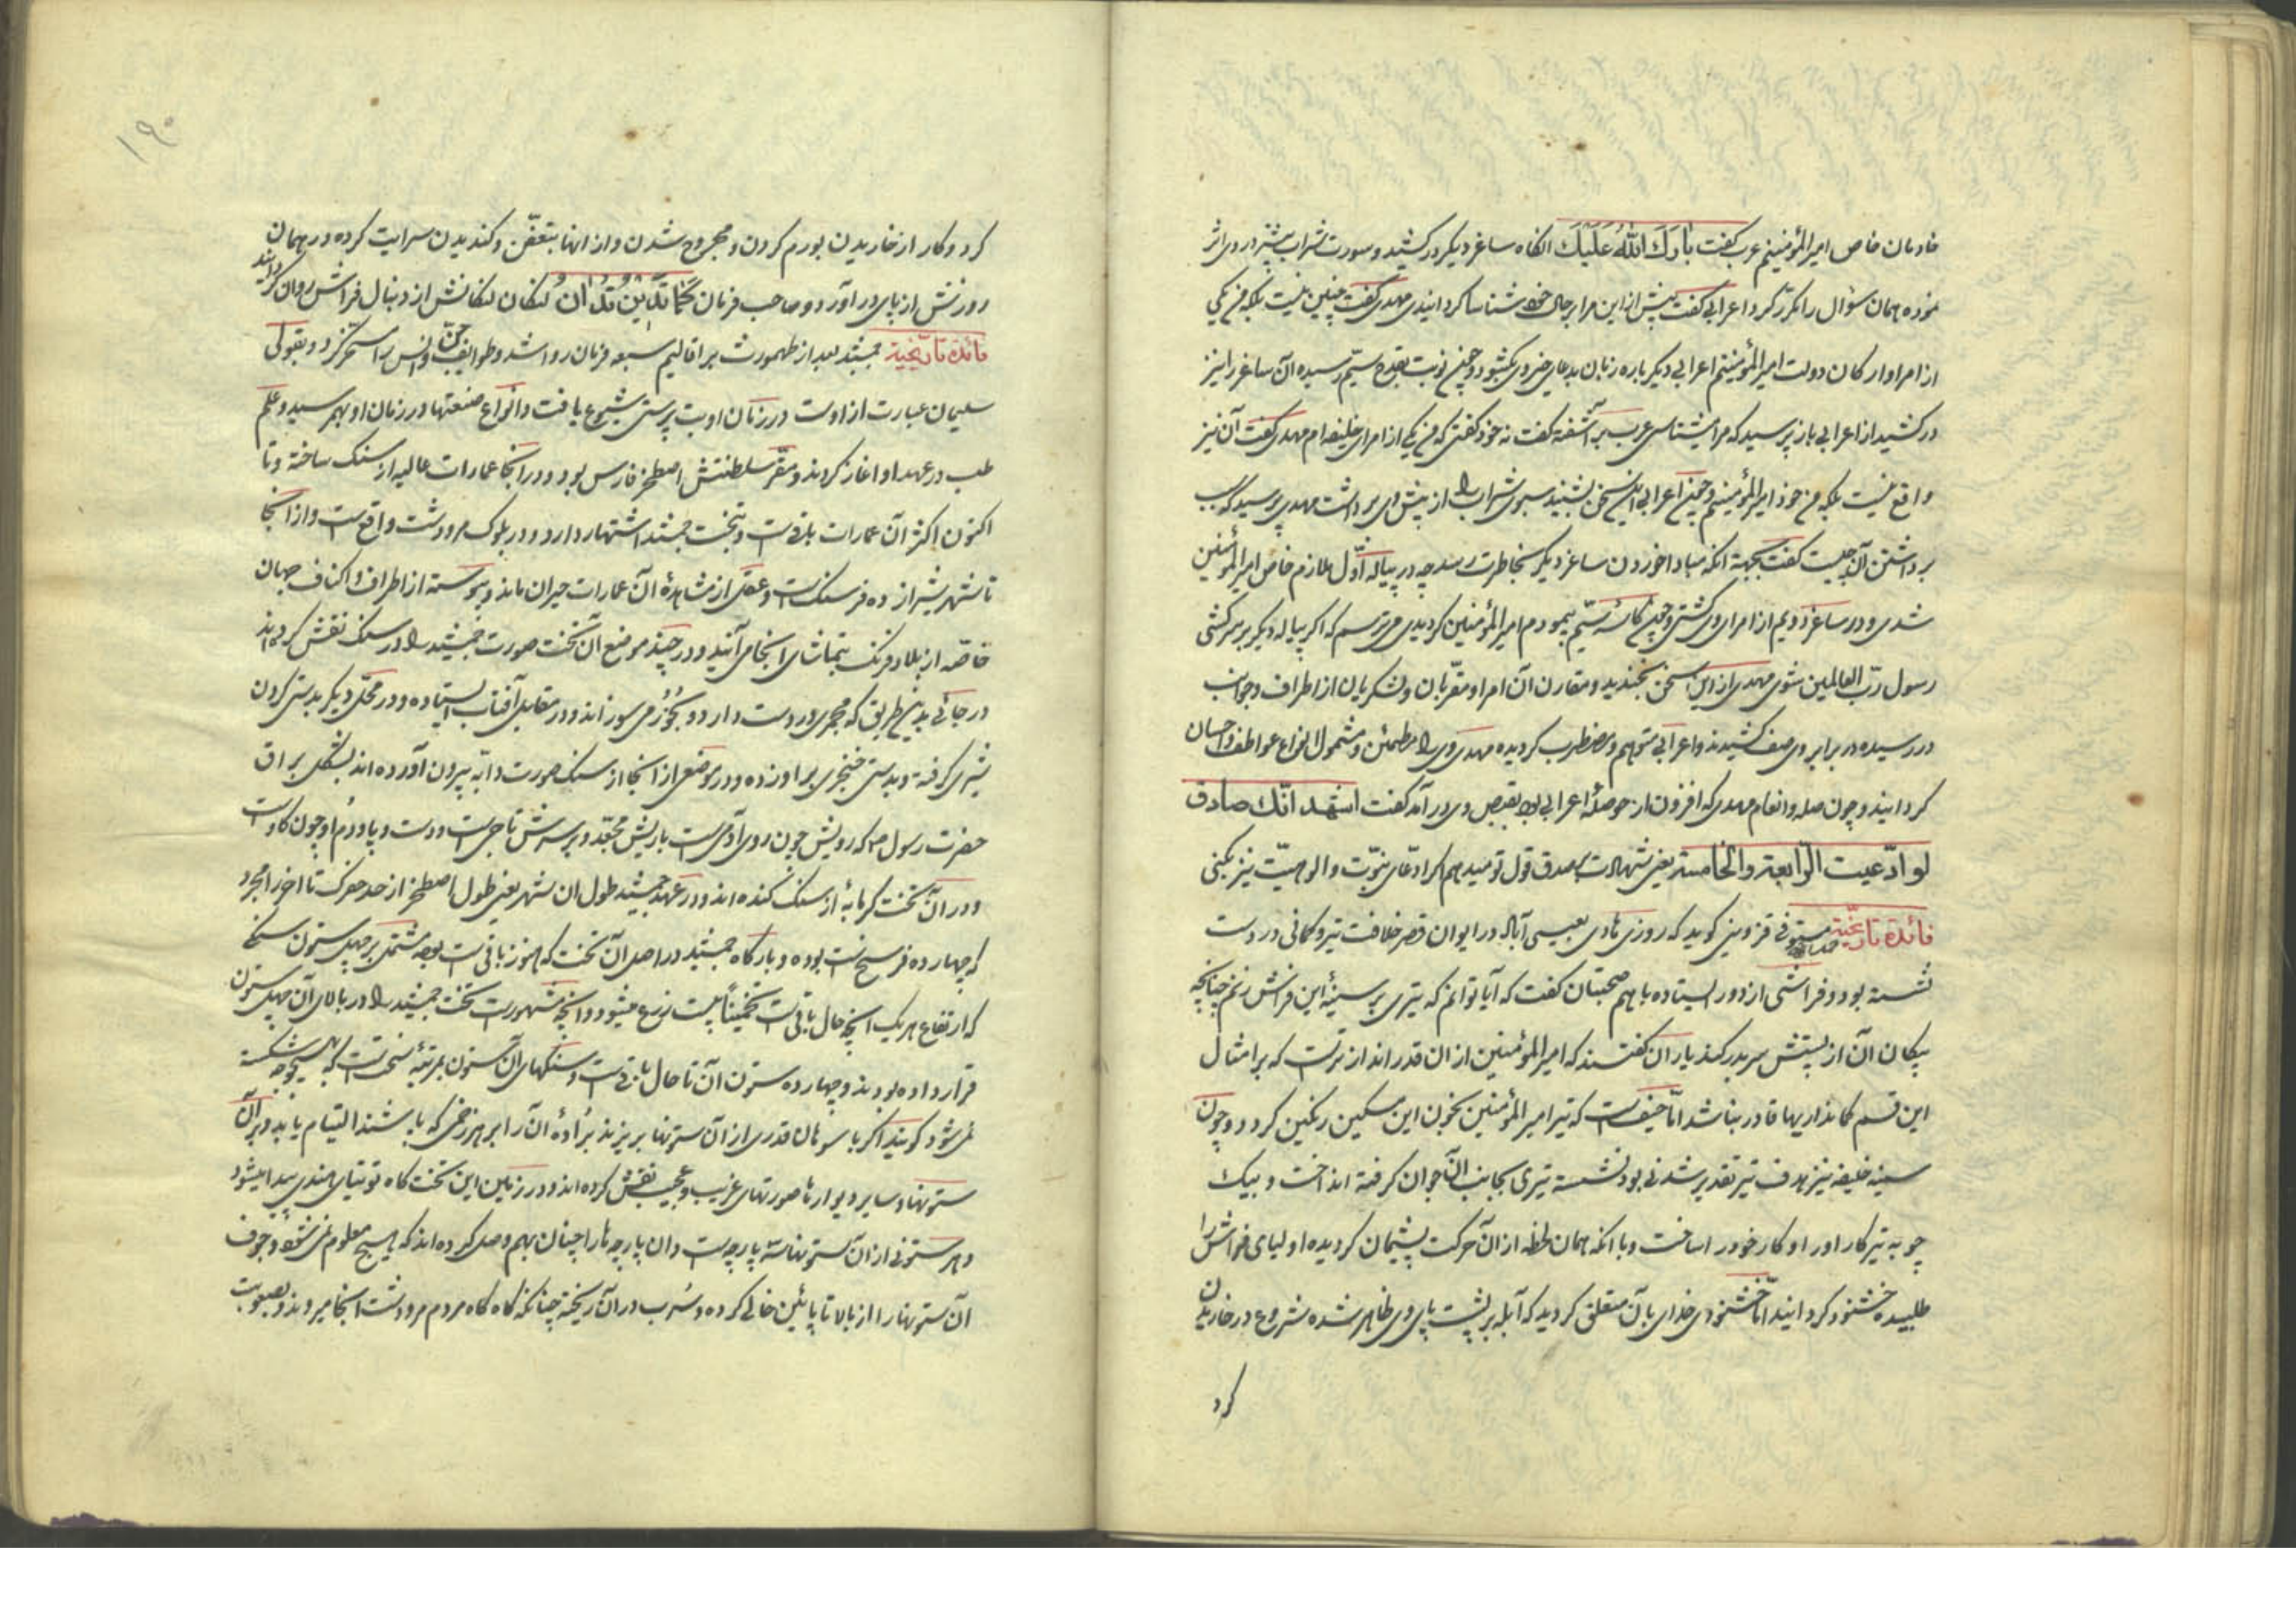 خادمان خاص امیرالمؤمنینم عرب گفت بارك الله علیك انگاه ساغر دیگر درکشید و سورت شراب بیشتر در وی اثر
نموده همان سؤال را مکرّر کرد اعرابی گفت پیش از این مرا بر حال خود شناسا گردانیدی مهدی گفت چنین نیست بلکه من یکی
از امرا و ارکان دولت امیرالمؤمنینم اعرابی دیگر باره زبان بدعای خیر وی بگشود و چون نوبت بقدح سیّم رسیده آن ساغر را نیز
درکشید از اعرابی باز پرسید که مرا میشناسی عرب برآشفته گفت نه خود گفتی که من یکی از امرای خلیفه ام مهدی گفت آن نیز
واقع نیست بلکه من خود امیرالمؤمنینم و چون اعرابی این سخن بشنید سبوی شراب را از پیش وی برداشت مهدی پرسید که سبب
برداشتن آن چیست گفت بجهة انکه مبادا خوردن ساغر دیگر بخاطرت رسد چه در پیاله اوّل ملازم خاص امیرالمؤمنین
شدی و در ساغر دویم از امرای وی گشتی و چون کاسۀ سیّم پیمودم امیرالمؤمنین گردیدی می ترسم که اگر پیاله دیگر بر سر کشی
رسول ربّ العالمین شوی مهدی از این سخن بخندید و مقارن آن امرا و مقرّبان و لشکریان از اطراف و جوانب
در رسیده در برابر وی صف کشیدند و اعرابی متوهم و مضطرب گردیده مهدی وی را مطمئن و مشمول انواع عواطف و احسان
گردانید و چون صله و انعام مهدی که افزون از حوصلۀ اعرابی بود بقبض وی در آمد گفت اشهد انّك صادق
لو ادّعیت الرّابعة والخامسة یعنی شهادت بصدق قول تو میدهم اگر ادّعای نبوّت و الوهیّت نیز بکنی
فائدة تاریخیّة حمدالله مستوفی قزوینی گوید که روزی هادی بعیسی آباد در ایوان قصر خلافت تیر و کمانی در دست
نشسته بود و فرّاشی از دور ایستاده با هم صحبتان گفت که آیا توانم که تیری بر سینۀ این فرّاش زنم چنانچه
پیکان آن از پشتش سر بدر کند یاران گفتند که امیرالمؤمنین از ان قدرانداز ترست که بر امثال
این قسم کمانداریها قادر نباشد امّا حیفست که تیر امیرالمؤمنین بخون این مسکین رنگین گردد و چون
سینۀ خلیفه نیز هدف تیر تقدیر شدنی بود نشسته تیری بجانب آن جوان گرفته انداخت و بیک
چوبه تیر کار او را و کار خود را ساخت و با انکه همان لحظه از آن حرکت پشیمان گردیده اولیای فرّاش را
طلبیده خشنود گردانید امّا خشنودی خدای بآن متعلّق گردید که آبله بر پشت پای وی ظاهر شده شروع در خاریدن
کرد
۱۹۰
کرد و کار از خاریدن بورم کردن و مجروح شدن و از انها بتعفّن و گندیدن سرایت کرده در همان
روز نش از پای در آورد و صاحب فرمان کما تدین تدان لنگان لنگانش از دنبال فرّاش روان گردانید
فائدة تاریخیّة جمشید بعد از طهمورث بر اقالیم سبعه فرمان روا شد و طوایف جنّ و انس را مسخّر کرد و بقولی
سلیمان عبارت از اوست در زمان او بت پرستی شیوع یافت و انواع صنعتها در زمان او بهم رسید و علم
طب در عهد او اغاز کردند و مقرّ سلطنتش اصطخر فارس بود و در انجا عمارات عالیه از سنگ ساخته و تا
اکنون اکثر آن عمارات باقیست و بتخت جمشید اشتهار دارد و در بلوک مرودشت واقعست و از انجا
تا شهر شیراز ده فرسنگست و عقل از مشاهدۀ آن عمارات حیران ماند و پیوسته از اطراف و اکناف جهان
خاصّه از بلاد فرنگ بتماشای انجا می آیند و در چند موضع ان تخت صورت جمشید را در سنگ نقش کرده اند
در جائی بدین طریق که مجمری در دست دارد و بخور می سوزاند و در مقابل آفتاب ایستاده و در محلّی دیگر بدستی گردن
شیری گرفته و بدستی خنجری بر او زده و در موضعی از انجا از سنگ صورت دابّه بیرون آورده اند بشکل براق
حضرت رسول ص که رویش چون روی آدمی است با ریش مجعّد و بر سرش تاجی است و دست و پا و دم او چون گاوست
و در آن تخت گرمابۀ از سنگ کنده اند و در عهد جمشید طول ان شهر یعنی طول اصطخر از حد حفرک تا اخر رامجرد
که چهارده فرسخ است بوده و بارگاه جمشید در اصل آن تخت که هنوز باقی است بوده مشتمل بر چهل ستون سنگی
که ارتفاع هر یک انچه حال باقی است تخمیناً بیست ذرع میشود و انچه مشهورست تخت جمشید را در بالای آن چهل ستون
قرار داده بودند و چهارده ستون آن تا حال باقی است و سنگهای آن ستون بمرتبۀ سخت است که بهیچوجه شکسته
نمی شود گویند اگر با سوهان قدری از آن ستونها بریزند برادۀ آن را بر هر زخمی که پاشند التیام یابد و بر آن
ستونها و سایر دیوارها صورتهای غریب و عجیب نقش کرده اند و در زمین این تخت گاه توتیای هندی پیدا میشود
و هر ستونی از آن ستونها سه پارچه است و ان پارچه ها را چنان بهم وصل کرده اند که هیچ معلوم نمی شود و جوف
آن ستونها را از بالا تا پائین خالی کرده و سرب در آن ریخته چنانکه گاه گاه مردم مرودشت انجا میروند و بصعوبت